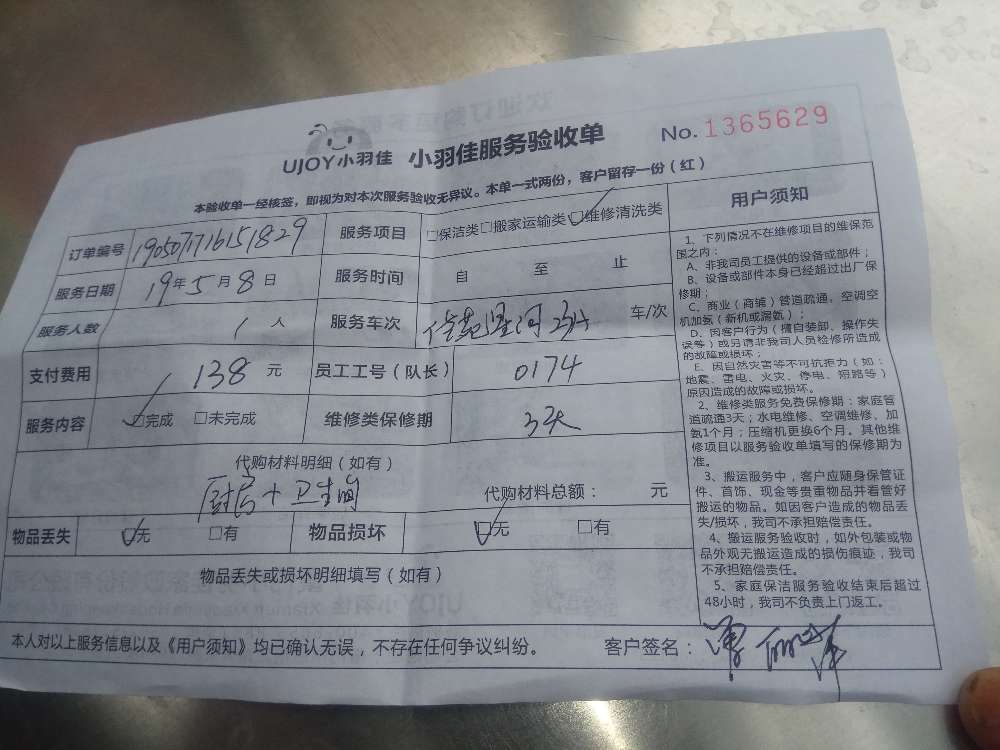 UJOY小羽佳 小羽佳服务验收单 No. 1365629
本验收单一经核签，即视为对本次服务验收无异议。本单一式两份，客户留存一份（红）
订单编号 190507716151829 服务项目 □保洁类□搬家运输类□维修清洗类
服务日期 19年5月8日 服务时间 自 至 止
服务人数 1人 服务车次 车/次
支付费用 138元 员工工号（队长） 0174
服务内容 □完成 □未完成 维修类保修期 3天
代购材料明细（如有）
厨房+卫生间 代购材料总额： 元
物品丢失 □无 □有 物品损坏 □无 □有
物品丢失或损坏明细填写（如有）
本人对以上服务信息以及《用户须知》均已确认无误，不存在任何争议纠纷。 客户签名：
用户须知
1、下列情况不在维修项目的维保范
围之内：
A、非我司员工提供的设备或部件；
B、设备或部件本身已经超过出厂保
修期；
C、商业（商铺）管道疏通，空调空
机加氨（新机或漏氨）；
D、因客户行为（擅自装卸、操作失
误等）或另请非我司人员检修所造成
的故障或损坏；
E、因自然灾害等不可抗拒力（如：
地震、雷电、火灾、停电、短路等）
原因造成的故障或损坏。
2、维修类服务免费保修期：家庭管
道疏通3天；水电维修、空调维修、加
氨1个月；压缩机更换6个月。其他维
修项目以服务验收单填写的保修期为
准。
3、搬运服务中，客户应随身保管证
件、首饰、现金等贵重物品并看管好
搬运的物品。如因客户造成的物品丢
失/损坏，我司不承担赔偿责任。
4、搬运服务验收时，如外包装或物
品外观无搬运造成的损伤痕迹，我司
不承担赔偿责任。
5、家庭保洁服务验收结束后超过
48小时，我司不负责上门返工。